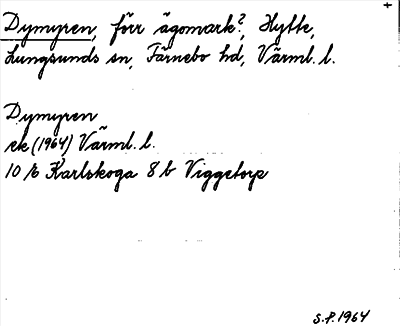 Dymyren, förr ägomark?, Hytte,
Lungsunds sn, Färnebo hd, Värml. l.
Dymyren
ek (1964) Värml. l.
10 E Karlskoga 8 b Viggetorp
S.P. 1964